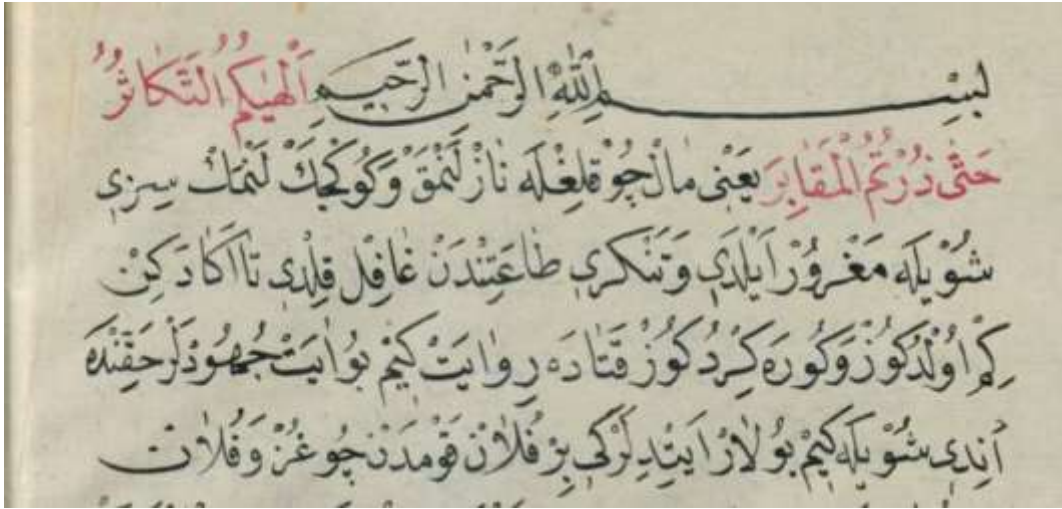 بِسْمِ اللّٰهِ الرَّحْمٰنِ الرَّحِيمِ اَلْهٰيكُمُ التَّكَاثُرُ
حَتّٰى زُرْتُمُ الْمَقَابِرَ يَعْنٖى مَالْ چُوْقلِغِلَه نَازْلَنْمَقْ وَكُوكْچَكْ لَنْمَكْ سِزٖى
شُوْيلَه مَغْرُورْ اَيْلَدٖى وَتَنْكرٖى طَاعَتِنْدَنْ غَافِلْ قِلْدٖى تَا اَكَا دَكِنْ
كِمْ اُولْدُكُوزْ وَكُورَه كِرْدُكُوزْ قَتَادَه رِوَايَتْ كِيْم بُو اٰيَتْ جُهُودْلَرْ حَقِنْدَه
اَنِدٖى شُوْيلَه كِيْم بُولَارْ اَيتْدِلَرْكٖى بِزْ فُلَانْ قَوْمدَنْ چُوغُزْ وَفُلَانْ